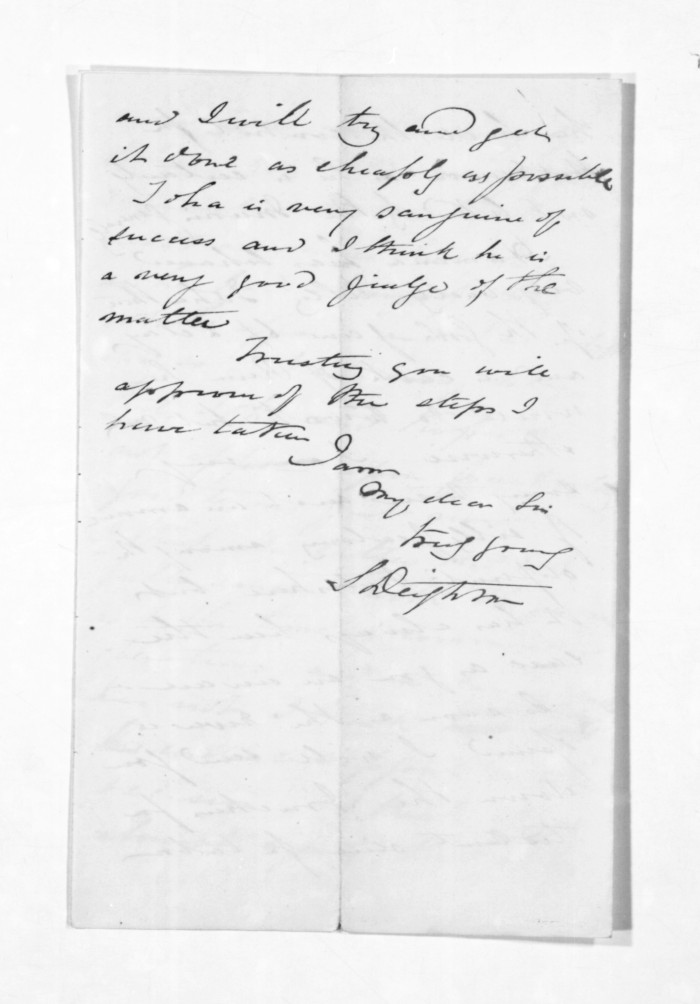 and I will try and get
it done as cheaply as possible
Toha is very sanguine of
success and I think he is
a very good judge of the
matter
Trusting you will
approve of the steps I
have taken
I am
My dear Sir
truly yours
S Deighton